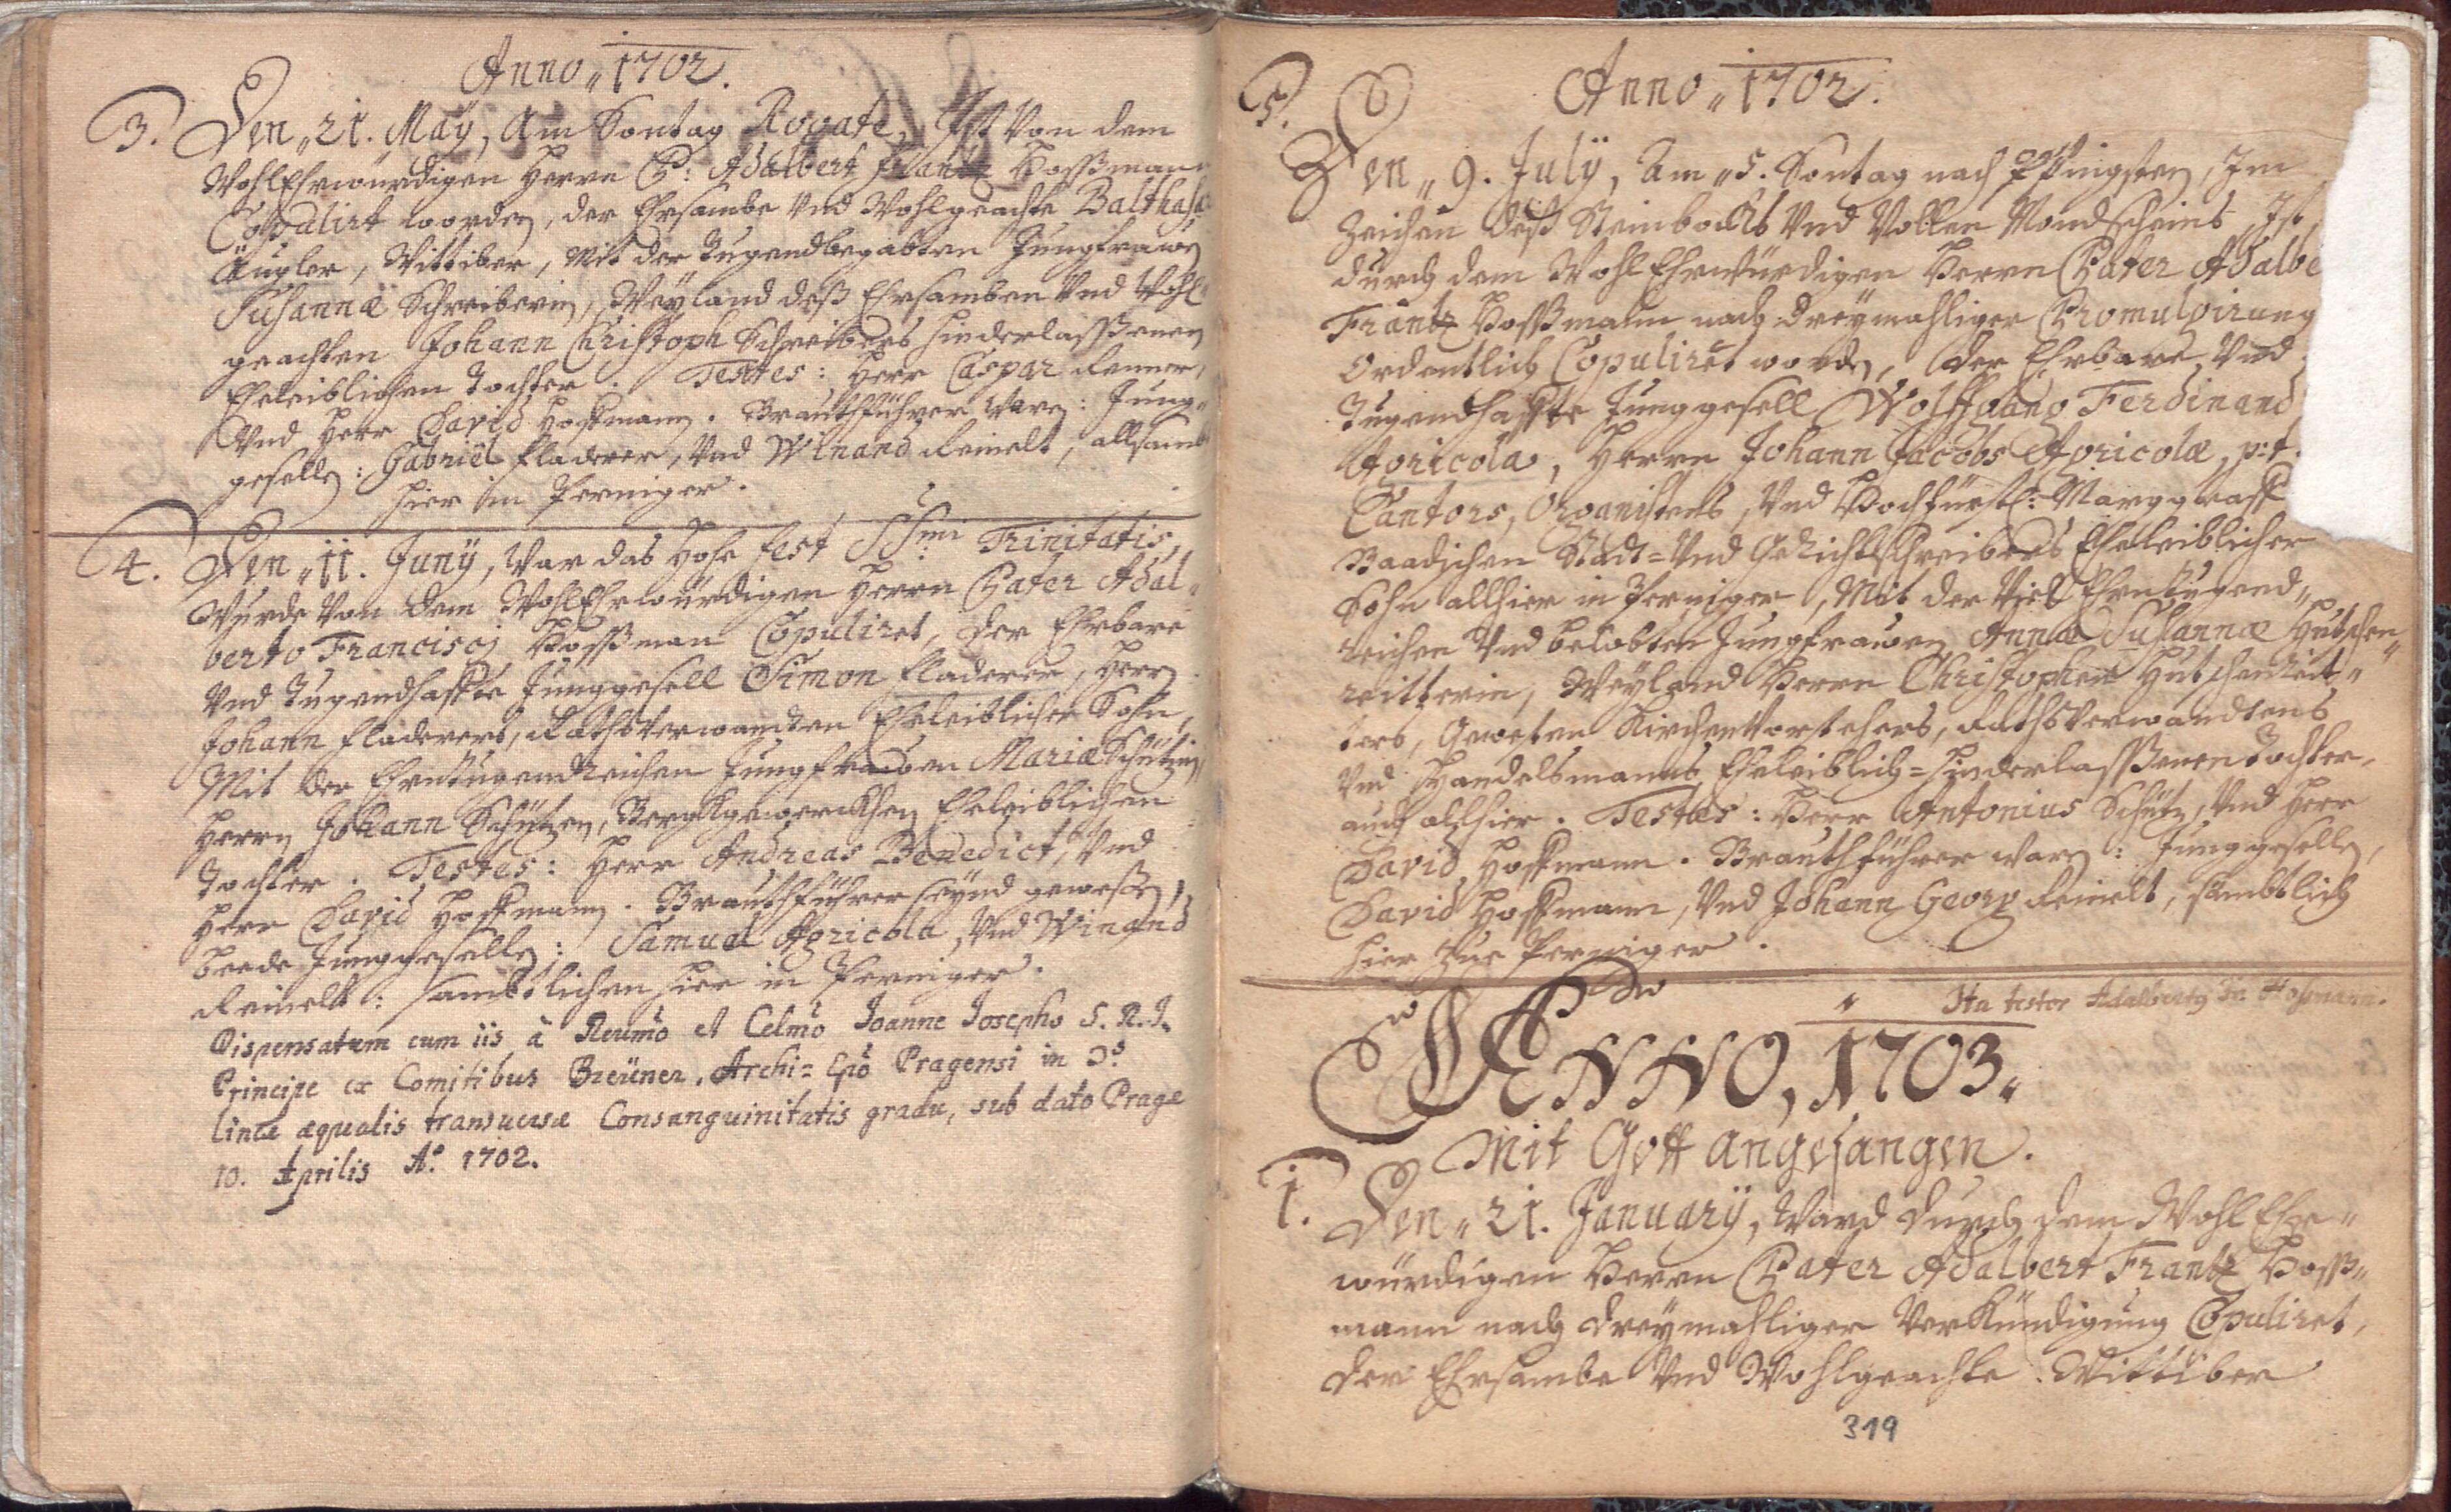 Anno „ 1702.
3. Den „ 21. May, Am Sontag Rogate, Ist Von dem
WohlEhrwürdigen Herrn P: Adalbert Frantz Hoßman
Copulirt worden, der Ehrsambe Vnd Wohlgeachte Balthasar
Kugler, Wittiber, Mit der Tugendbegabten Jungfrawen
Susannæ Schreiberin, Weyland deß Ehrsamben Vnd Wohl„
geachten Johann Christoph Schreibers hinderlaßenen
Eheleiblichen Tochter. Testes: Herr Caspar Renner,
Vnd Herr David Hoffmann. Brauthführer Waren: Jung„
gesellen: Gabriel Fladerer, Vnd Winand Reinelt, allsamb
hier im Perninger.
4. Den „ 11. Juny, War das Hohe Fest SSmi Trinitatis,
Wurde Von dem WohlEhrwürdigen Herrn Pater Adal„
berto Francisci Hoßman Copuliret, der Ehrbare
Vnd Tugendhaffte Junggesell Simon Fladerer, Herrn
Johann Fladerers, Rathsverwandten Eheleiblicher Sohn,
Mit der Ehrntugendreichen Jungfrawen Mariæ Schützin,
Herrn Johann Schützen, Bergkgewerckhen Eheleiblichen
Tochter. Testes: Herr Andreas Benedict, Vnd
Herr David Hoffmann. Brauthführer seynd geweßen,
beede Junggesellen: Samuel Agricola, Vnd Winand
Reinelt: sambtlichen hier in Perninger.
Dispensatum cum iis à Reumo et Celmo Joanne Josepho S. R. I.
Principe ex Comitibus Breüner, Archi-Epo Pragensi in 3º
linea æqualis transuersæ Consanguinitatis gradu, sub dato Pragæ
10. Aprilis Aº. 1702.
Anno „ 1702.
5. Den „ 9. July, Am „ 5. Sontag nach Pfingsten, Im
Zeichen deß Steinbockhs Vnd Vollen Mondscheins Ist
durch dem WohlEhrwürdigen Herrn Pater Adalbe
Frantz Hoßmann nach dreymahliger Promulgirung
Ordentlich Copuliret worden, Der Ehrbare Vnd
Tugendhaffte Junggesell Wolffgang Ferdinand
Agricola, Herrn Johann Jacobs Agricolæ, p: t.
Cantors, Organistens, Vnd Hochfürstl: Marggraff
Baadischen Stadt- Vnd Gerichtschreibers Eheleiblicher
Sohn allhier in Perninger, Mit der Viel Ehrntugend„
reichen Vnd belobten Jungfrawen Annæ Susannæ Hutschen„
reitterin, Weyland Herrn Christophen Hutschenreit„
ters, Gewesten KirchenVorstehers, Rathsverwandtens
Vnd Handelsmanns Eheleiblich- hinderlaßenen Tochter,
auch allhier. Testes: Herr Antonius Schütz, Vnd Herr
David Hoffmann. Brauthführer waren: Junggesellen,
David Hoffmann, Vnd Johann Georg Reinelt, sämbtlich
hier zue Perninger.
Ita testor Adalbertg Fr. Hoßmann.
ANNO, 1703.
Mit Gott angefangen.
1. Den „ 21. January, Ward durch dem WohlEhr„
würdigen Herrn Pater Adalbert Frantz Hoß„
mann nach dreymahliger Verkündigung Copuliret,
der Ehrsambe Vnd Wohlgeachte Wittiber
319